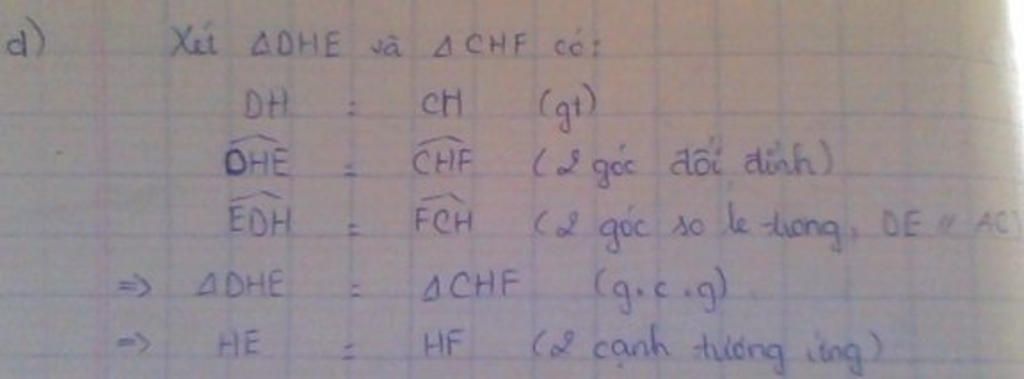 d) Xét ΔDHE và ΔCHF có:
DH = CH (gt)
\widehat{DHE} = \widehat{CHF} (2 góc đối đỉnh)
\widehat{EDH} = \widehat{FCH} (2 góc so le trong, DE // AC)
=> ΔDHE = ΔCHF (g.c.g)
=> HE = HF (2 cạnh tương ứng)